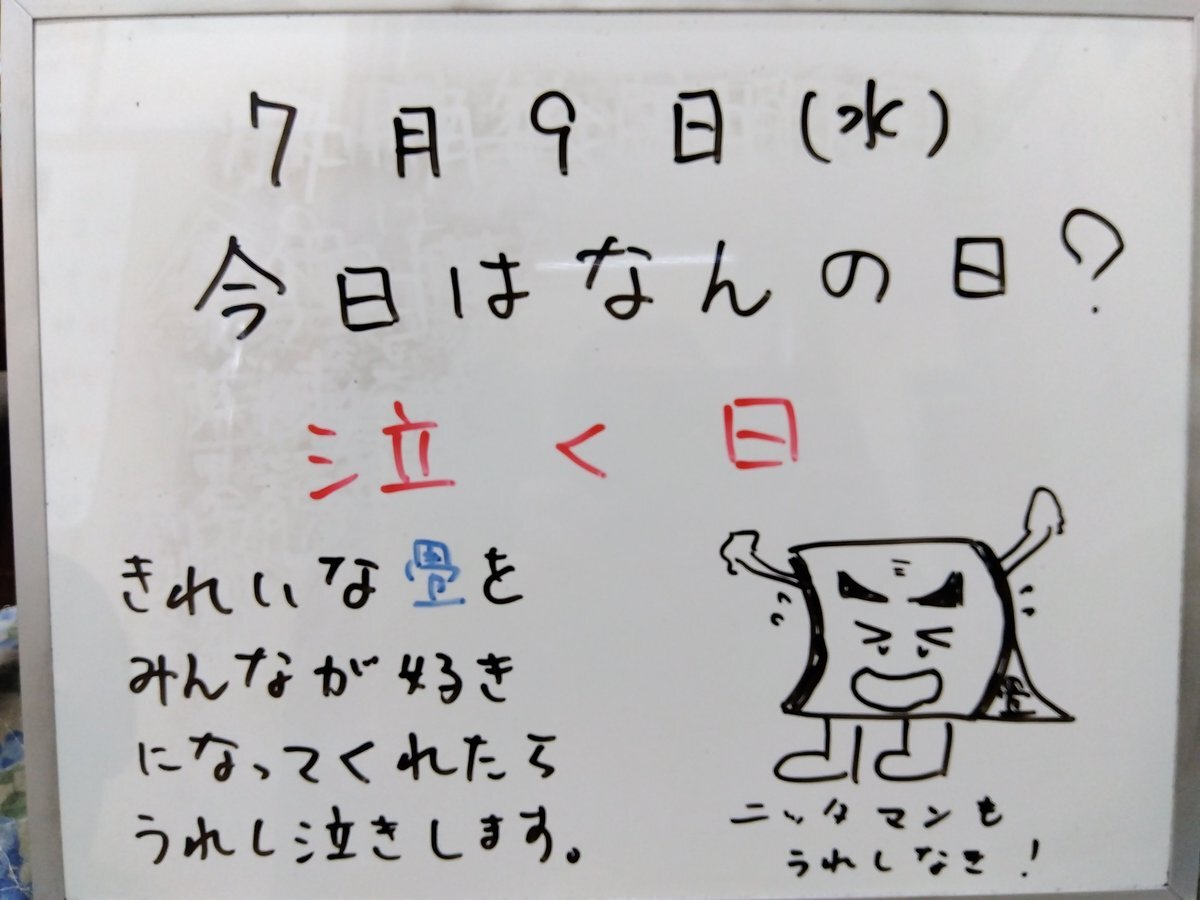 7月9日(水)
今日はなんの日?
泣く日
きれいな畳を
みんなが好き
になってくれたら
うれし泣きします。
畳
ニッタマンも
うれしなき!